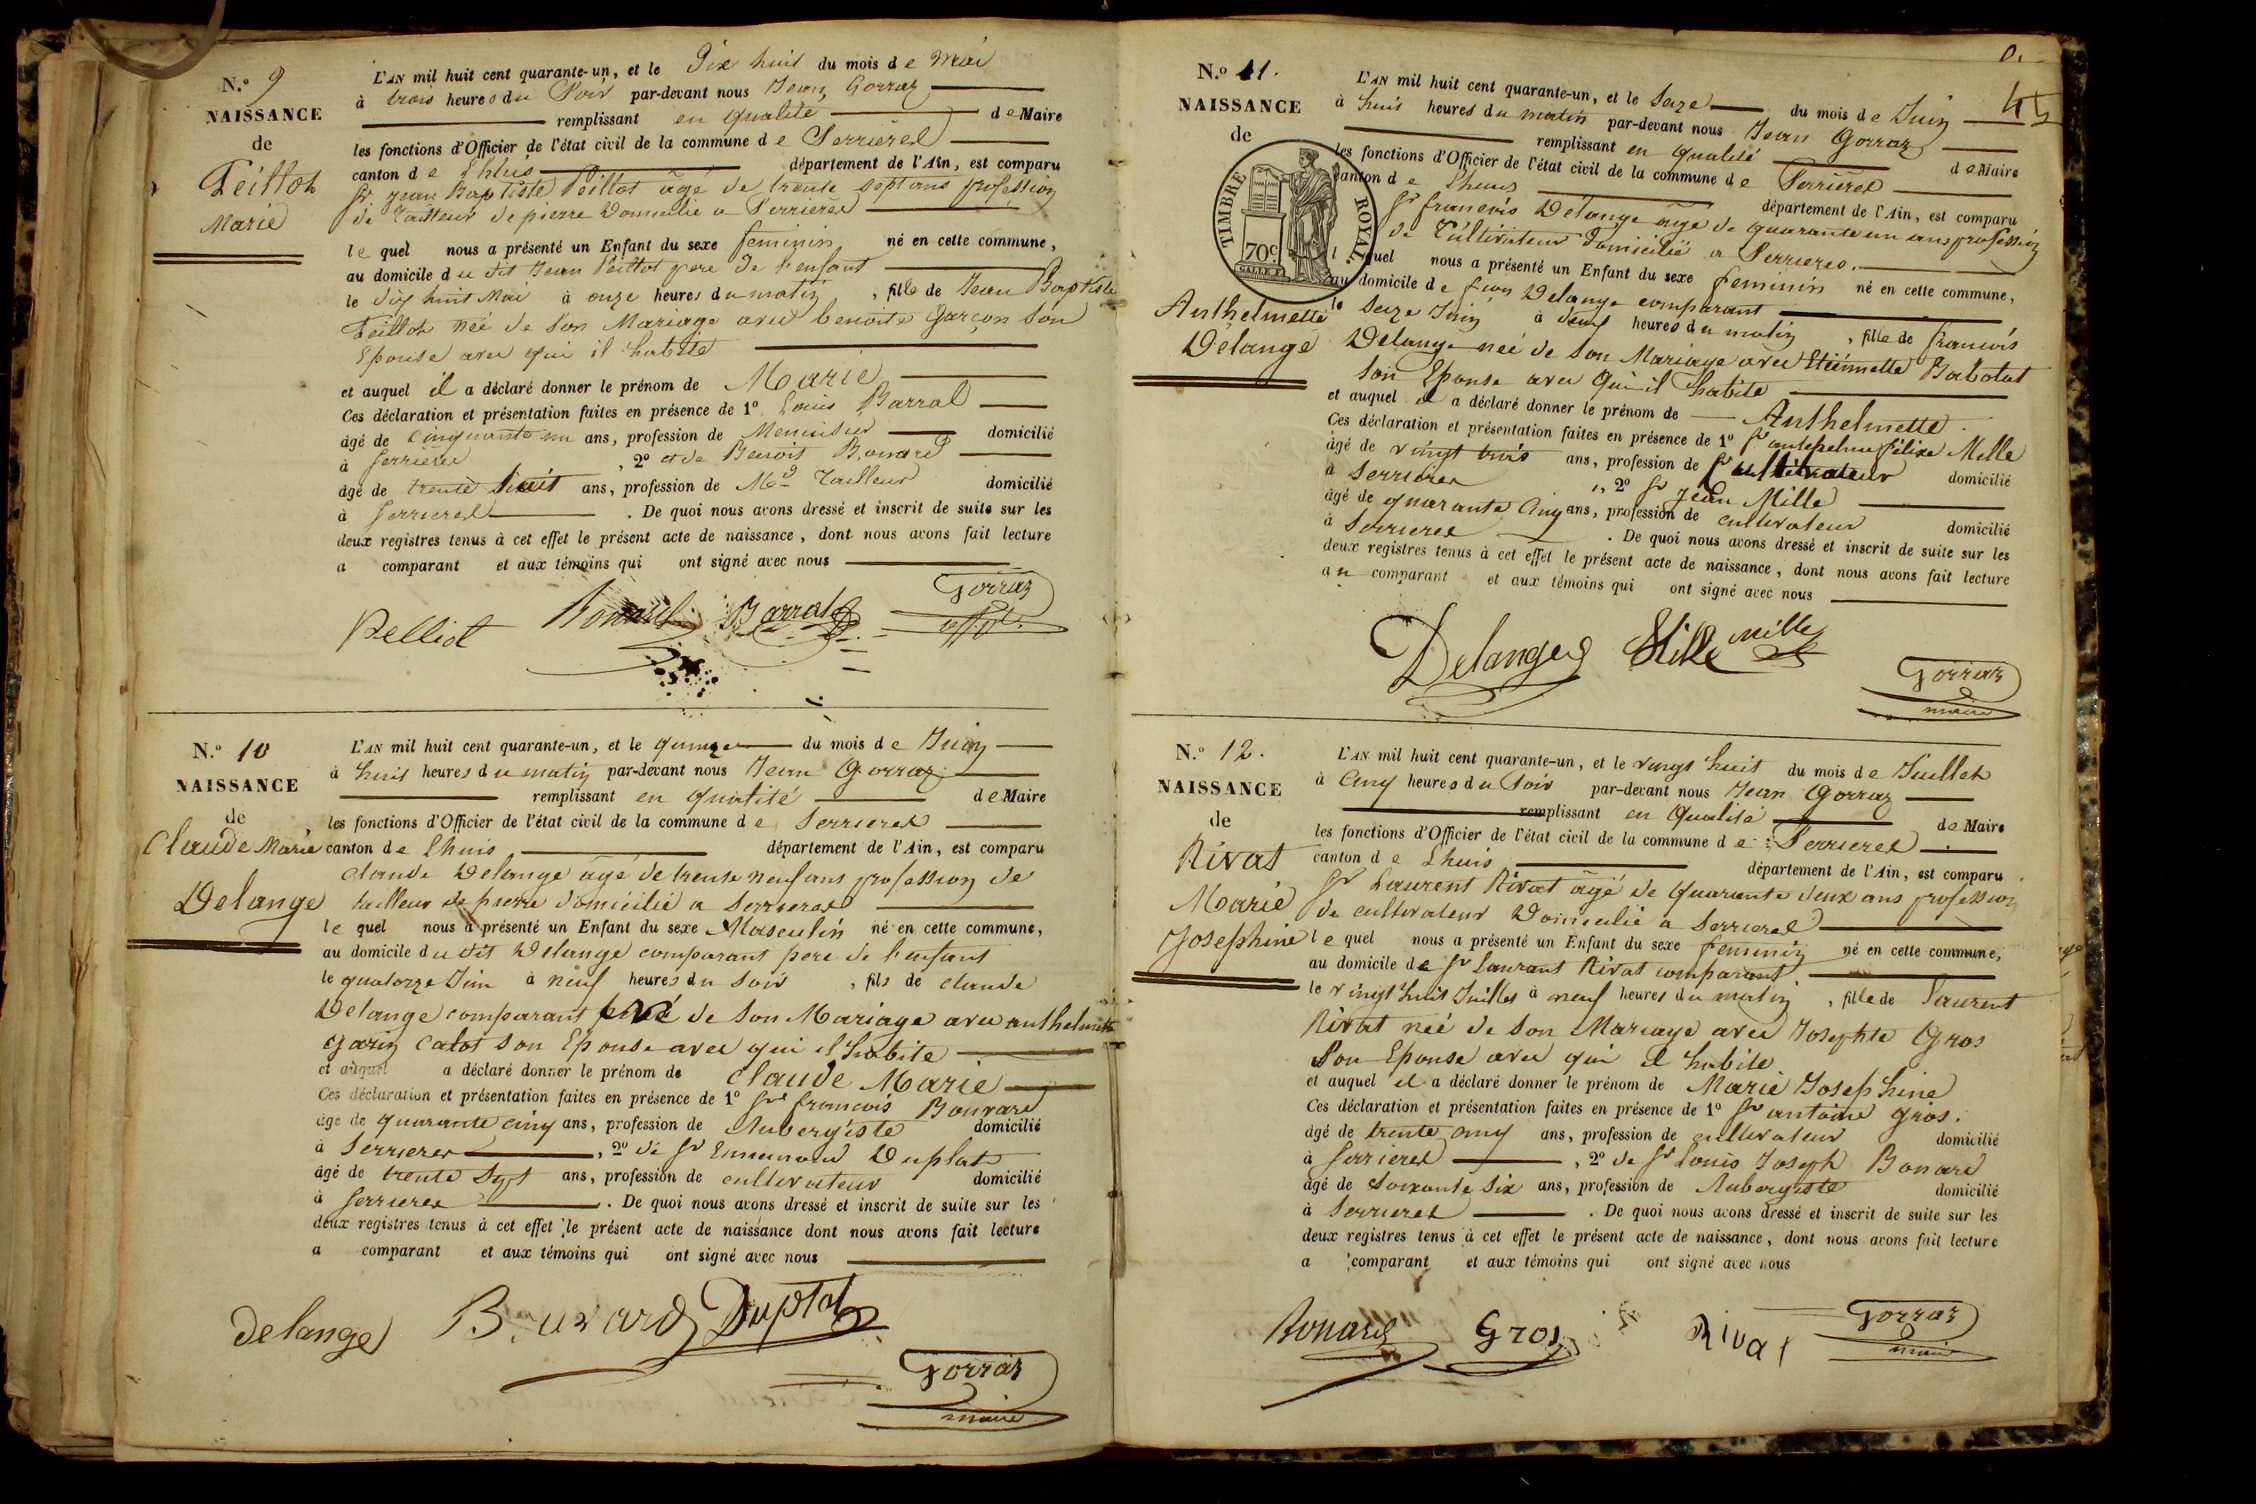 N.º 9
NAISSANCE
de
Peillot
Marie
L'AN mil huit cent quarante-un, et le Dix huit du mois de Mai
à trois heures du Soir par-devant nous Jean Gorraz
remplissant en qualité de Maire
les fonctions d'Officier de l'état civil de la commune de Serrieres
canton de Lhuis département de l'Ain, est comparu
Sr Jean Baptiste Peillot âgé de trente sept ans profession
de Tailleur de pierre Domicilié a Serrieres
le quel nous a présenté un Enfant du sexe feminin né en cette commune,
au domicile du dit Jean Peillot pere de l'enfant
le dix huit Mai à onze heures du matin, fille de Jean Baptiste
Peillot née de Son Mariage avec benoite Garçon Son
Epouse avec qui il habite
et auquel il a déclaré donner le prénom de Marie
Ces déclaration et présentation faites en présence de 1º Louis Barral
âgé de cinquante un ans, profession de Menuisier domicilié
à Serrieres, 2º et de Benoit Bonard
âgé de trente huit ans, profession de Md Tailleur domicilié
à Serrieres. De quoi nous avons dressé et inscrit de suite sur les
deux registres tenus à cet effet le présent acte de naissance, dont nous avons fait lecture
a comparant et aux témoins qui ont signé avec nous
Pelliot Bonard Barral Gorraz
N.º 10
NAISSANCE
de
Claude Marie
Delange
L'AN mil huit cent quarante-un, et le quinze du mois de Juin
à huit heures du matin par-devant nous Jean Gorraz
remplissant en qualité de Maire
les fonctions d'Officier de l'état civil de la commune de Serrieres
canton de Lhuis département de l'Ain, est comparu
Claude Delange âgé de trente neuf ans profession de
tailleur de pierre domicilié a Serrieres
le quel nous a présenté un Enfant du sexe Masculin né en cette commune,
au domicile du dit Delange comparant pere de l'enfant
le quatorze Juin à neuf heures du soir, fils de claude
Delange comparant né de Son Mariage avec anthelmette
garin calot son Epouse avec qui il habite
et auquel a déclaré donner le prénom de Claude Marie
Ces déclaration et présentation faites en présence de 1º Sr francois Bouvard
âgé de quarante cinq ans, profession de Aubergiste domicilié
à Serrieres, 2º de Sr Ennemond Duplat
âgé de trente Sept ans, profession de cultivateur domicilié
à Serrieres. De quoi nous avons dressé et inscrit de suite sur les
deux registres tenus à cet effet le présent acte de naissance dont nous avons fait lecture
a comparant et aux témoins qui ont signé avec nous
delange Bouvard Duplat
Gorraz
maire
45
N.º 11.
NAISSANCE
de
TIMBRE ROYAL
70c.
Anthelmette
Delange
L'AN mil huit cent quarante-un, et le Seize du mois de Juin
à huit heures du matin par-devant nous Jean Gorraz
remplissant en qualité de Maire
les fonctions d'Officier de l'état civil de la commune de Serrieres
canton de Lhuis département de l'Ain, est comparu
Sr francois Delange âgé de quarante un ans profession
de Cultivateur Domicilié a Serrieres.
le quel nous a présenté un Enfant du sexe feminin né en cette commune,
au domicile de fcois Delange comparant
le Seize Juin à deux heures du matin, fille de francois
Delange née de Son Mariage avec Etiennette Babolat
Son Epouse avec Qui il habite
et auquel il a déclaré donner le prénom de Anthelmette.
Ces déclaration et présentation faites en présence de 1º Sr antelme félixe Mille
âgé de vingt trois ans, profession de cultivateur domicilié
à Serrieres, 2º Sr Jean Mille
âgé de quarante Cinq ans, profession de cultivateur domicilié
à Serrieres. De quoi nous avons dressé et inscrit de suite sur les
deux registres tenus à cet effet le présent acte de naissance, dont nous avons fait lecture
au comparant et aux témoins qui ont signé avec nous
Delange Mille Mille
Gorraz
maire
N.º 12.
NAISSANCE
de
Rivat
Marie
Josephine
L'AN mil huit cent quarante-un, et le vingt huit du mois de Juillet
à Cinq heures du Soir par-devant nous Jean Gorraz
remplissant en Qualité de Maire
les fonctions d'Officier de l'état civil de la commune de Serrieres
canton de Lhuis département de l'Ain, est comparu
Sr Laurent Rivat âgé de Quarante deux ans profession
de cultivateur Domicilié a Serrieres
le quel nous a présenté un Enfant du sexe feminin né en cette commune,
au domicile de Sr Laurant Rivat comparant
le vingt huit Juillet à neuf heures du matin, fille de Laurent
Rivat née de Son Mariage avec Josephte Gros
Son Epouse avec qui il habite
et auquel il a déclaré donner le prénom de Marie Josephine
Ces déclaration et présentation faites en présence de 1º Sr antoine gros.
âgé de trente cinq ans, profession de cultivateur domicilié
à Serrieres, 2º de Sr Louis Joseph Bonard
âgé de Soixante Six ans, profession de Aubergiste domicilié
à Serrieres. De quoi nous avons dressé et inscrit de suite sur les
deux registres tenus à cet effet le présent acte de naissance, dont nous avons fait lecture
a comparant et aux témoins qui ont signé avec nous
Bonard Gros Rivat Gorraz
maire